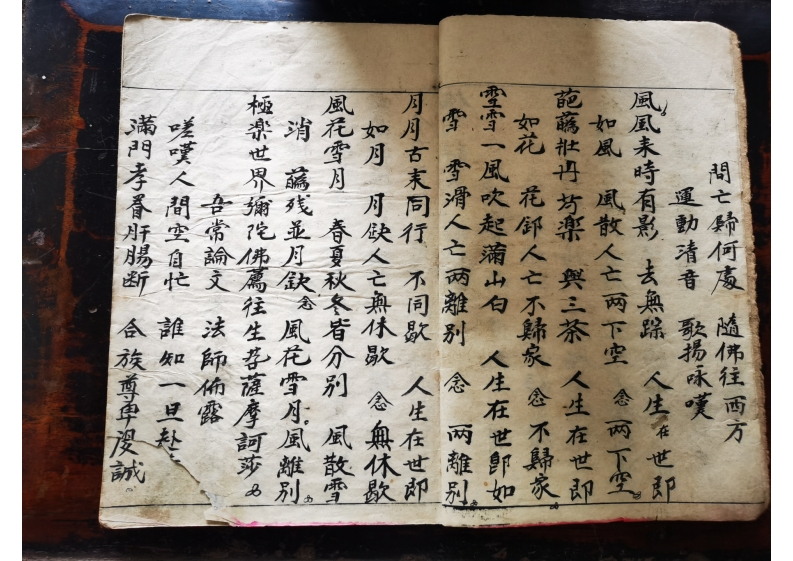 問亡歸何處　隨佛往西方
運動清音　歌揚咏嘆
風風来時有影　去無踪　人生在世即
如風　風散人亡两下空　念　两下空
葩藊牡丹芍藥　與三茶　人生在世即
如花　花卸人亡不歸家　念　不歸家
雪雪一風吹起滿山白　人生在世即如
雪　雪滑人亡两離别　念　两離别
月月古末同行　不同歇　人生在世即
如月　月缺人亡無休歇　念　無休歇
風花雪月　春夏秋冬皆分别　風散雪
消　藊残並月欽　念　風花雪月風離别
極楽世界彌陀佛薦往生菩薩摩訶莎
吾常論文　法師佈露
嗟嘆人間空自忙　誰知一旦赴
滿門孝眷肝腸断　合族尊卑虔誠